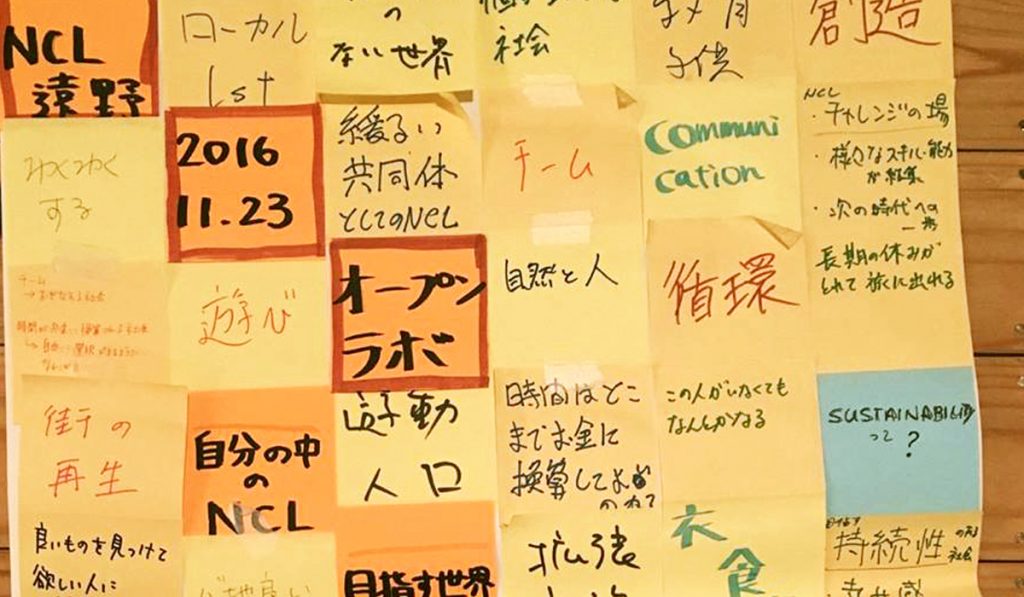 NCL
遠野
ローカル
1st
の
ない世界
社会
子供
創造
わくわく
する
2016
11.23
緩るい
共同体
としてのNCL
チーム
communi
cation
NCL
・チャレンジの場
・様々なスキル・能力
が結集
・次の時代への
一歩
チーム
遊び
オープン
ラボ
自然と人
循環
長期の休みが
とれて旅に出れる
街の
再生
自分の中
の
NCL
人口
時間はどこ
までお金に
換算してよ
のかて
この人がいなくても
なんとかなる
SUSTAINABILITY
って
?
良いものを見つけて
欲しい人に
目指す世界
拡張
衣
食
目指す
持続性
のある
社会